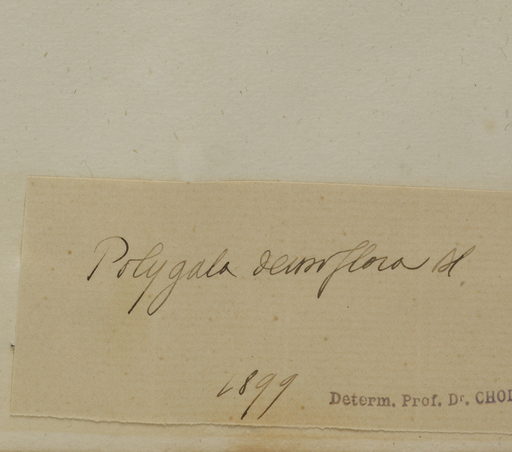 Polygala densiflora Bl.
1899
Determ. Prof. Dr. CHOD